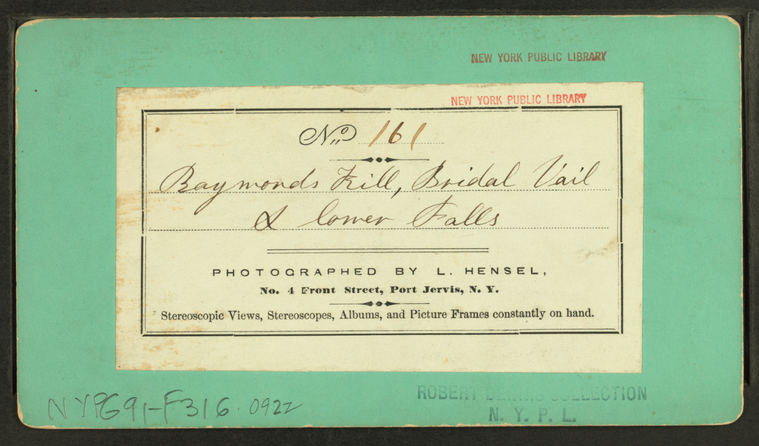 NEW YORK PUBLIC LIBRARY
NEW YORK PUBLIC LIBRARY
No. 161
Raymonds Kill, Bridal Vail
& lower Falls
PHOTOGRAPHED BY L. HENSEL,
No. 4 Front Street, Port Jervis, N. Y.
Stereoscopic Views, Stereoscopes, Albums, and Picture Frames constantly on hand.
ROBERT DENNIS COLLECTION
N. Y. P. L.
NYPG91-F316 0922